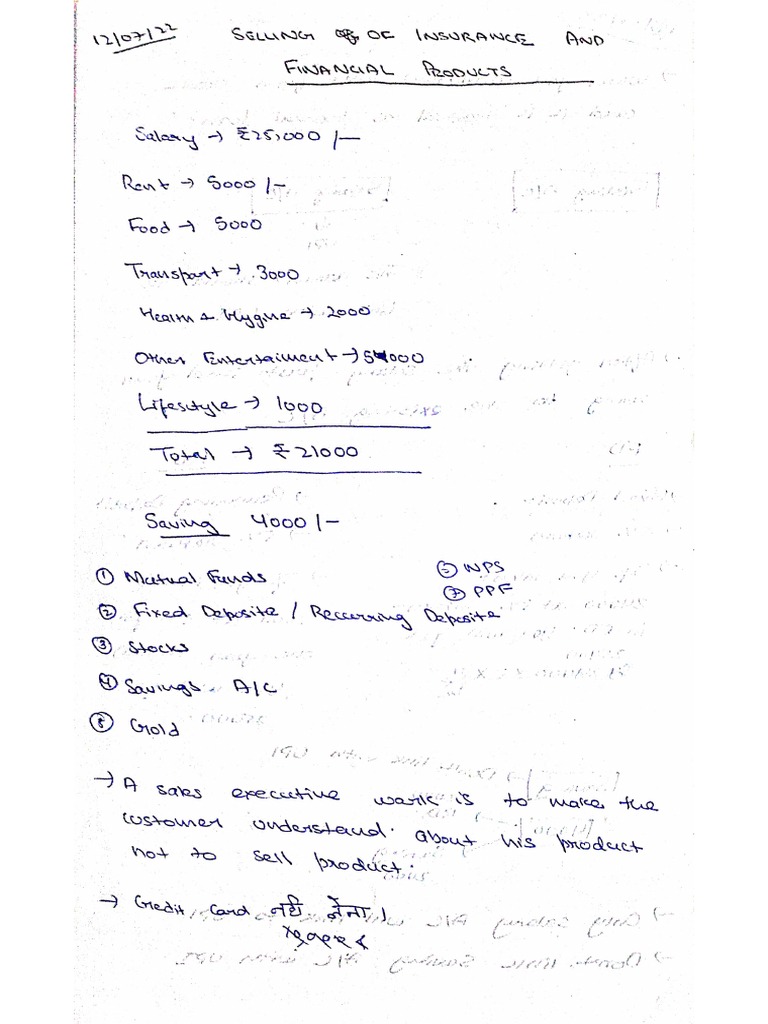 12/07/22 SELLING OF INSURANCE AND
FINANCIAL PRODUCTS
Salary → ₹25,000/—
Rent → 5000/-
Food → 5000
Transport → 3000
Health & Hygne → 2000
Other Entertaiment → 5000
Lifestyle → 1000
Total → ₹21000
Saving 4000/-
① Mutual Funds
⑤ NPS
⑦ PPF
② Fixed Deposite / Recurring Deposite
③ Stocks
④ Savings A/C
⑤ Gold
→ A sales executive work is to make the
customer understand about his product
not to sell product.
→ Credit Card नही लेना।